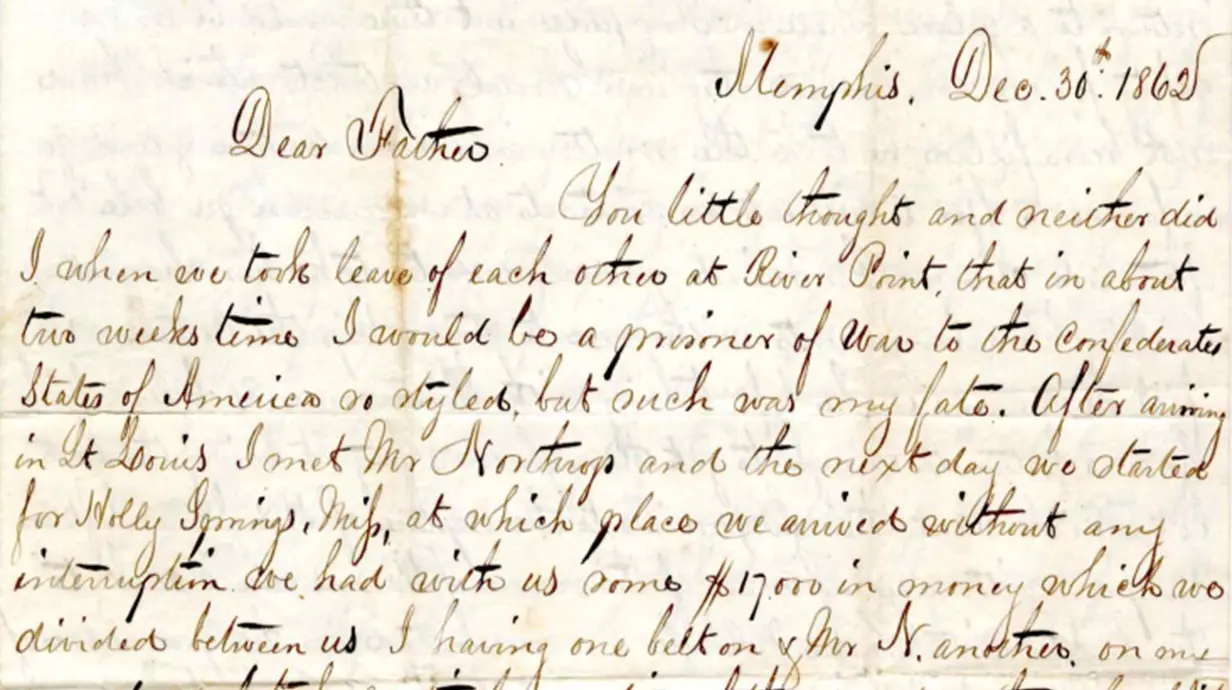 Memphis. Dec. 30th. 1862
Dear Father.
You little thought and neither did
I when we took leave of each other at River Point, that in about
two weeks time I would be a prisoner of War to the Confederate
States of America so styled, but such was my fate. After arriving
in St Louis I met Mr Northrop and the next day we started
for Holly Springs, Miss, at which place we arrived without any
interruption we had with us some $17.000 in money which we
divided between us I having one belt on & Mr N. another. on me